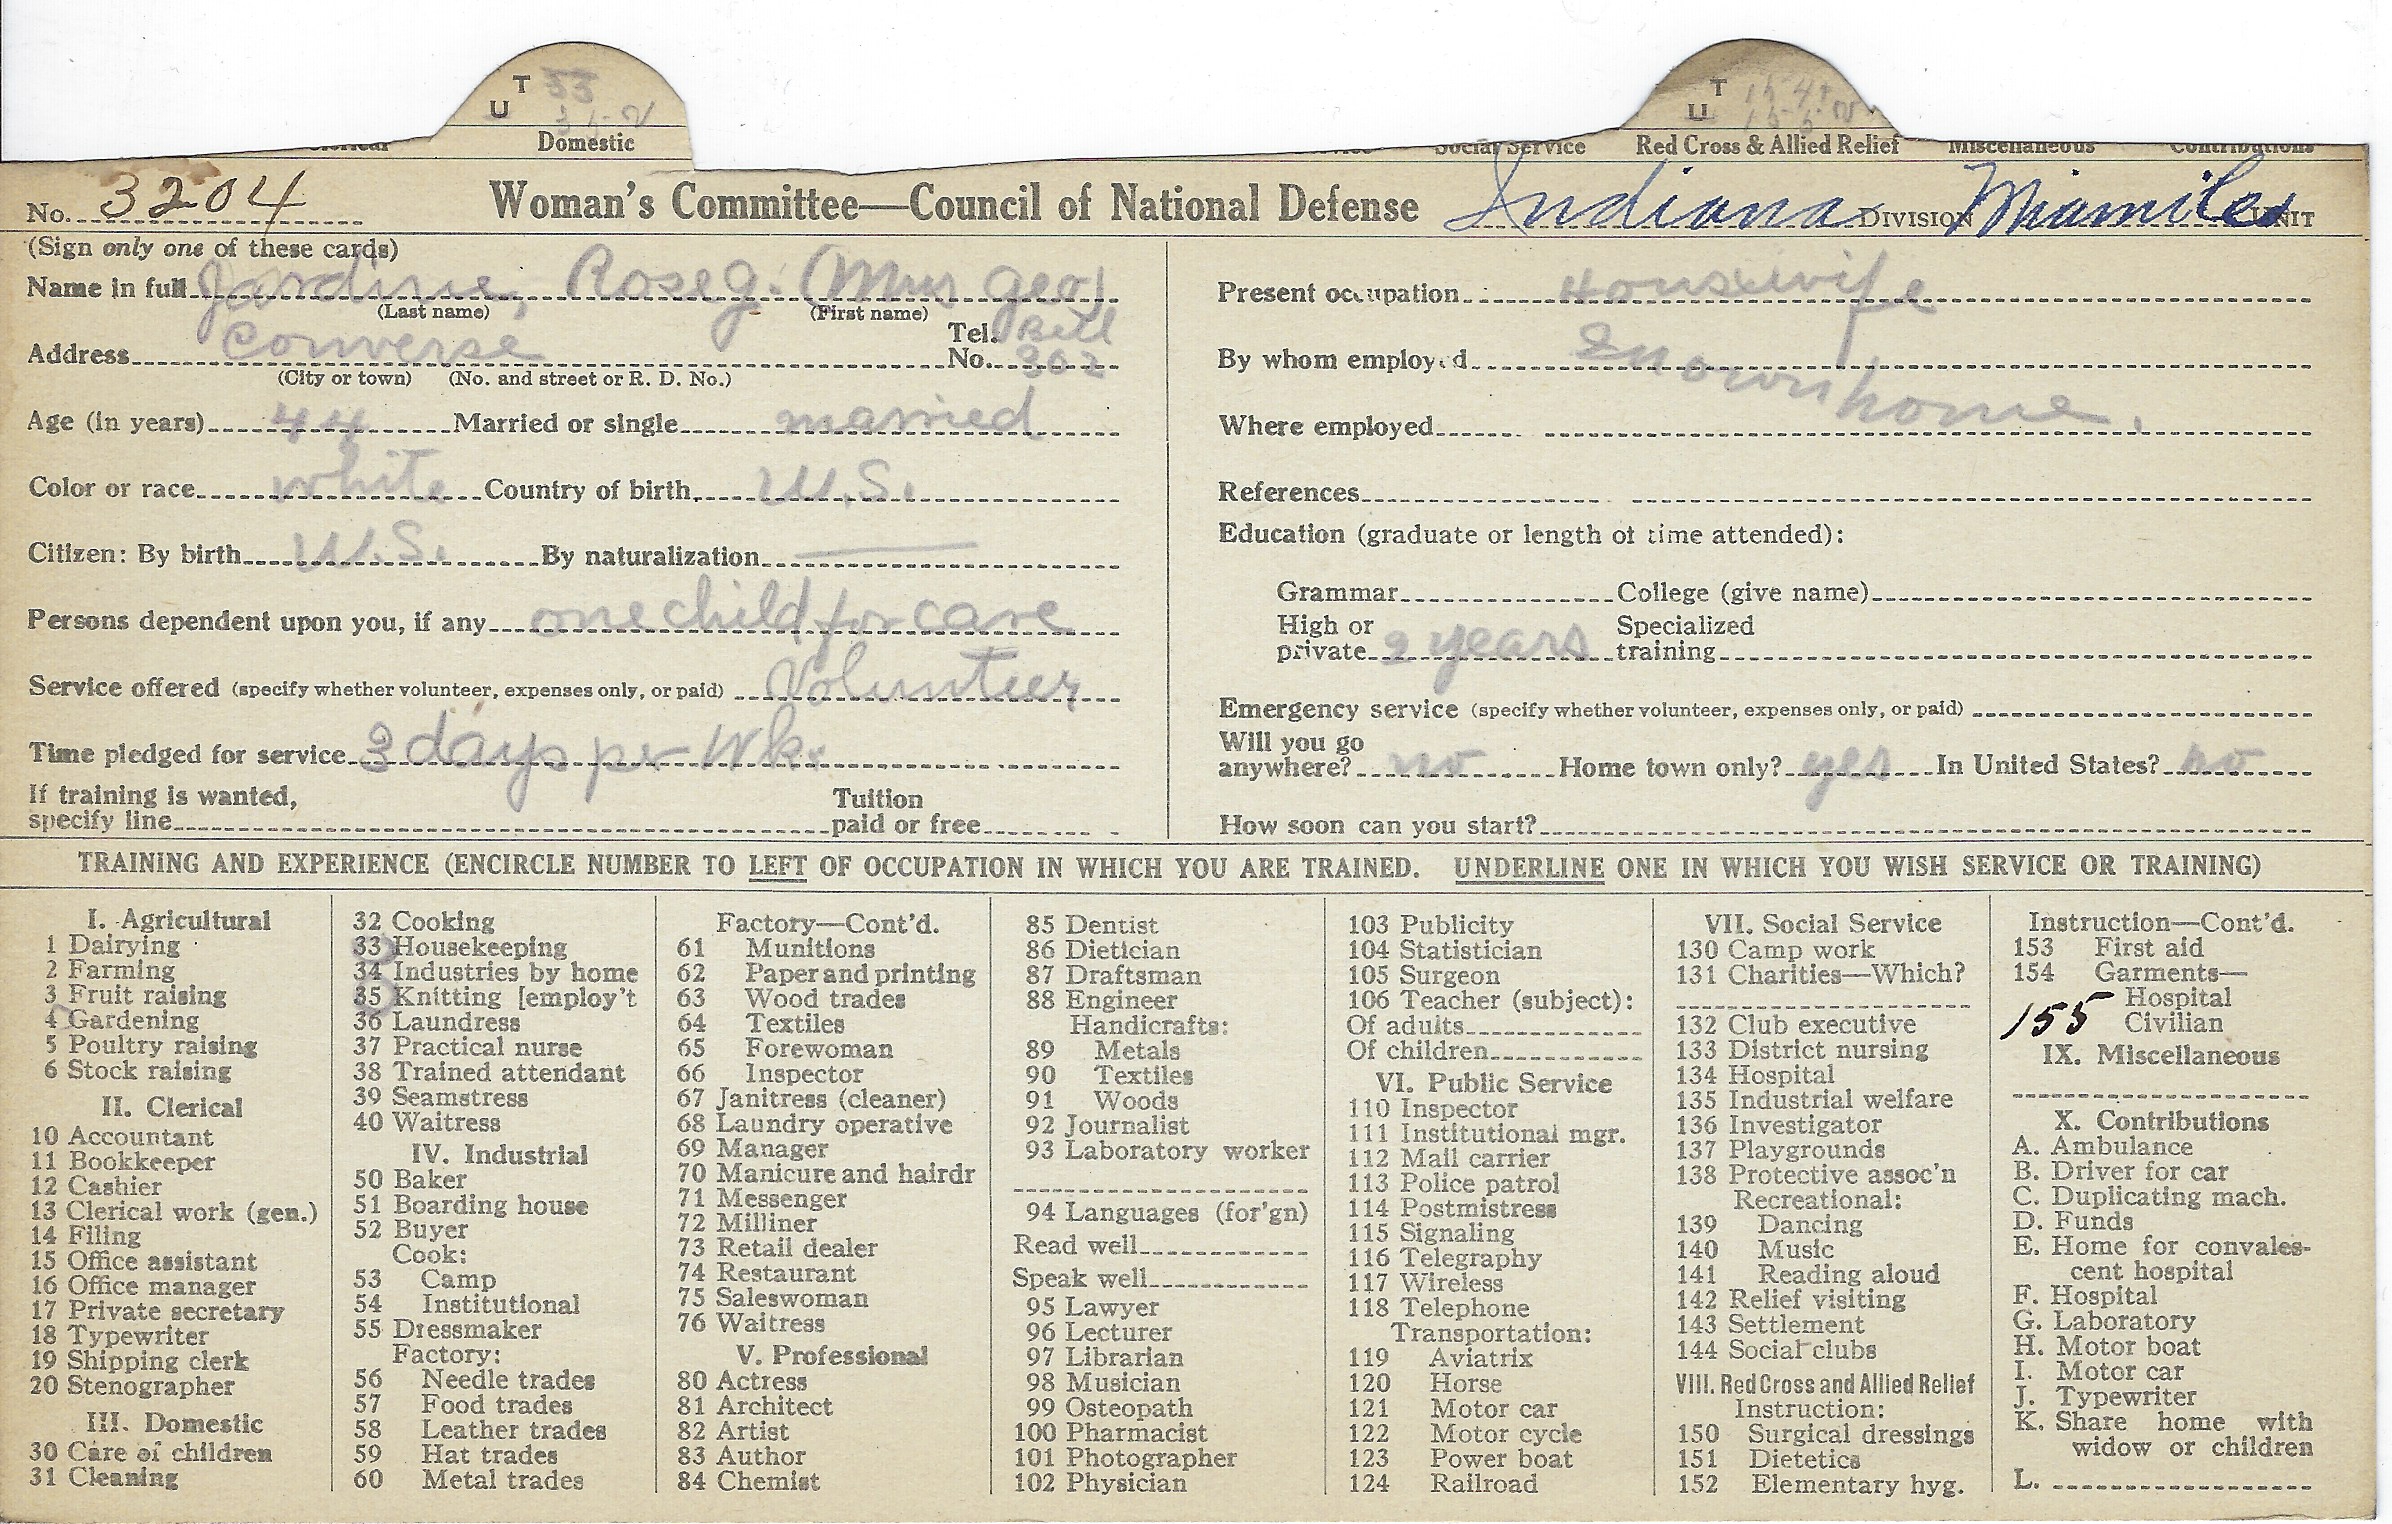 T 33
U 35-v
Domestic
T 154
U 155 v
Social Service Red Cross & Allied Relief Miscellaneous Contributions
No. 3204 Woman's Committee—Council of National Defense Indiana DIVISION UNIT
(Sign only one of these cards)
Name in full Jardine, Rose G. (Mrs Geo)
(Last name) (First name)
Address Converse Tel. No. Bell 302
(City or town) (No. and street or R. D. No.)
Age (in years) 44 Married or single married
Color or race white Country of birth U.S.
Citizen: By birth U.S. By naturalization ——
Persons dependent upon you, if any one child for care
Service offered (specify whether volunteer, expenses only, or paid) Volunteer
Time pledged for service 3 days per wk.
If training is wanted, specify line Tuition paid or free
Present occupation Housewife
By whom employed In own home.
Where employed
References
Education (graduate or length of time attended):
Grammar College (give name)
High or private 2 years Specialized training
Emergency service (specify whether volunteer, expenses only, or paid)
Will you go anywhere? no Home town only? yes In United States? no
How soon can you start?
TRAINING AND EXPERIENCE (ENCIRCLE NUMBER TO LEFT OF OCCUPATION IN WHICH YOU ARE TRAINED. UNDERLINE ONE IN WHICH YOU WISH SERVICE OR TRAINING)
I. Agricultural
1 Dairying
2 Farming
3 Fruit raising
4 Gardening
5 Poultry raising
6 Stock raising
II. Clerical
10 Accountant
11 Bookkeeper
12 Cashier
13 Clerical work (gen.)
14 Filing
15 Office assistant
16 Office manager
17 Private secretary
18 Typewriter
19 Shipping clerk
20 Stenographer
III. Domestic
30 Care of children
31 Cleaning
32 Cooking
33 Housekeeping
34 Industries by home
35 Knitting [employ't
36 Laundress
37 Practical nurse
38 Trained attendant
39 Seamstress
40 Waitress
IV. Industrial
50 Baker
51 Boarding house
52 Buyer
Cook:
53 Camp
54 Institutional
55 Dressmaker
Factory:
56 Needle trades
57 Food trades
58 Leather trades
59 Hat trades
60 Metal trades
Factory—Cont'd.
61 Munitions
62 Paper and printing
63 Wood trades
64 Textiles
65 Forewoman
66 Inspector
67 Janitress (cleaner)
68 Laundry operative
69 Manager
70 Manicure and hairdr
71 Messenger
72 Milliner
73 Retail dealer
74 Restaurant
75 Saleswoman
76 Waitress
V. Professional
80 Actress
81 Architect
82 Artist
83 Author
84 Chemist
85 Dentist
86 Dietician
87 Draftsman
88 Engineer
Handicrafts:
89 Metals
90 Textiles
91 Woods
92 Journalist
93 Laboratory worker
94 Languages (for'gn)
Read well
Speak well
95 Lawyer
96 Lecturer
97 Librarian
98 Musician
99 Osteopath
100 Pharmacist
101 Photographer
102 Physician
103 Publicity
104 Statistician
105 Surgeon
106 Teacher (subject):
Of adults
Of children
VI. Public Service
110 Inspector
111 Institutional mgr.
112 Mail carrier
113 Police patrol
114 Postmistress
115 Signaling
116 Telegraphy
117 Wireless
118 Telephone
Transportation:
119 Aviatrix
120 Horse
121 Motor car
122 Motor cycle
123 Power boat
124 Railroad
VII. Social Service
130 Camp work
131 Charities—Which?
132 Club executive
133 District nursing
134 Hospital
135 Industrial welfare
136 Investigator
137 Playgrounds
138 Protective assoc'n
Recreational:
139 Dancing
140 Music
141 Reading aloud
142 Relief visiting
143 Settlement
144 Social clubs
VIII. Red Cross and Allied Relief
Instruction:
150 Surgical dressings
151 Dietetics
152 Elementary hyg.
Instruction—Cont'd.
153 First aid
154 Garments—
Hospital
155 Civilian
IX. Miscellaneous
X. Contributions
A. Ambulance
B. Driver for car
C. Duplicating mach.
D. Funds
E. Home for convales-
cent hospital
F. Hospital
G. Laboratory
H. Motor boat
I. Motor car
J. Typewriter
K. Share home with
widow or children
L.